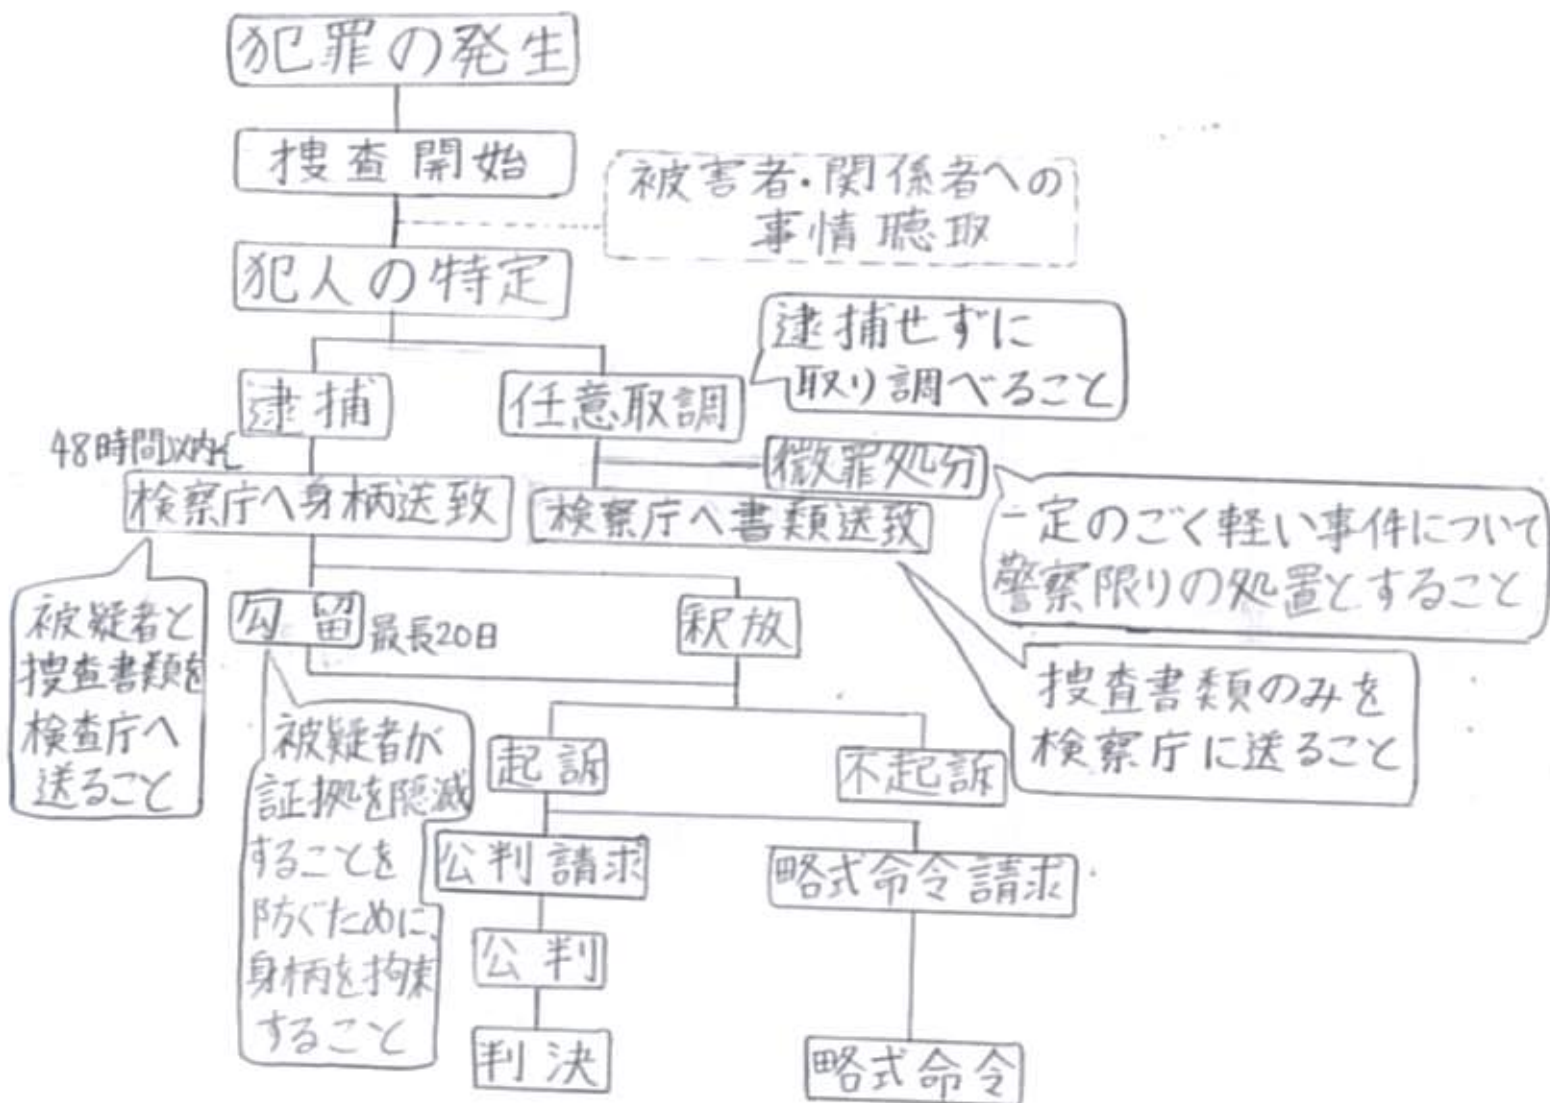 犯罪の発生
捜査開始
被害者・関係者への
事情聴取
犯人の特定
逮捕せずに
取り調べること
逮捕
任意取調
48時間以内に
微罪処分
検察庁へ身柄送致
検察庁へ書類送致
一定のごく軽い事件について
警察限りの処置とすること
被疑者と
捜査書類を
検査庁へ
送ること
勾留
最長20日
釈放
捜査書類のみを
検察庁に送ること
被疑者が
証拠を隠滅
することを
防ぐために、
身柄を拘束
すること
起訴
不起訴
公判請求
略式命令請求
公判
判決
略式命令